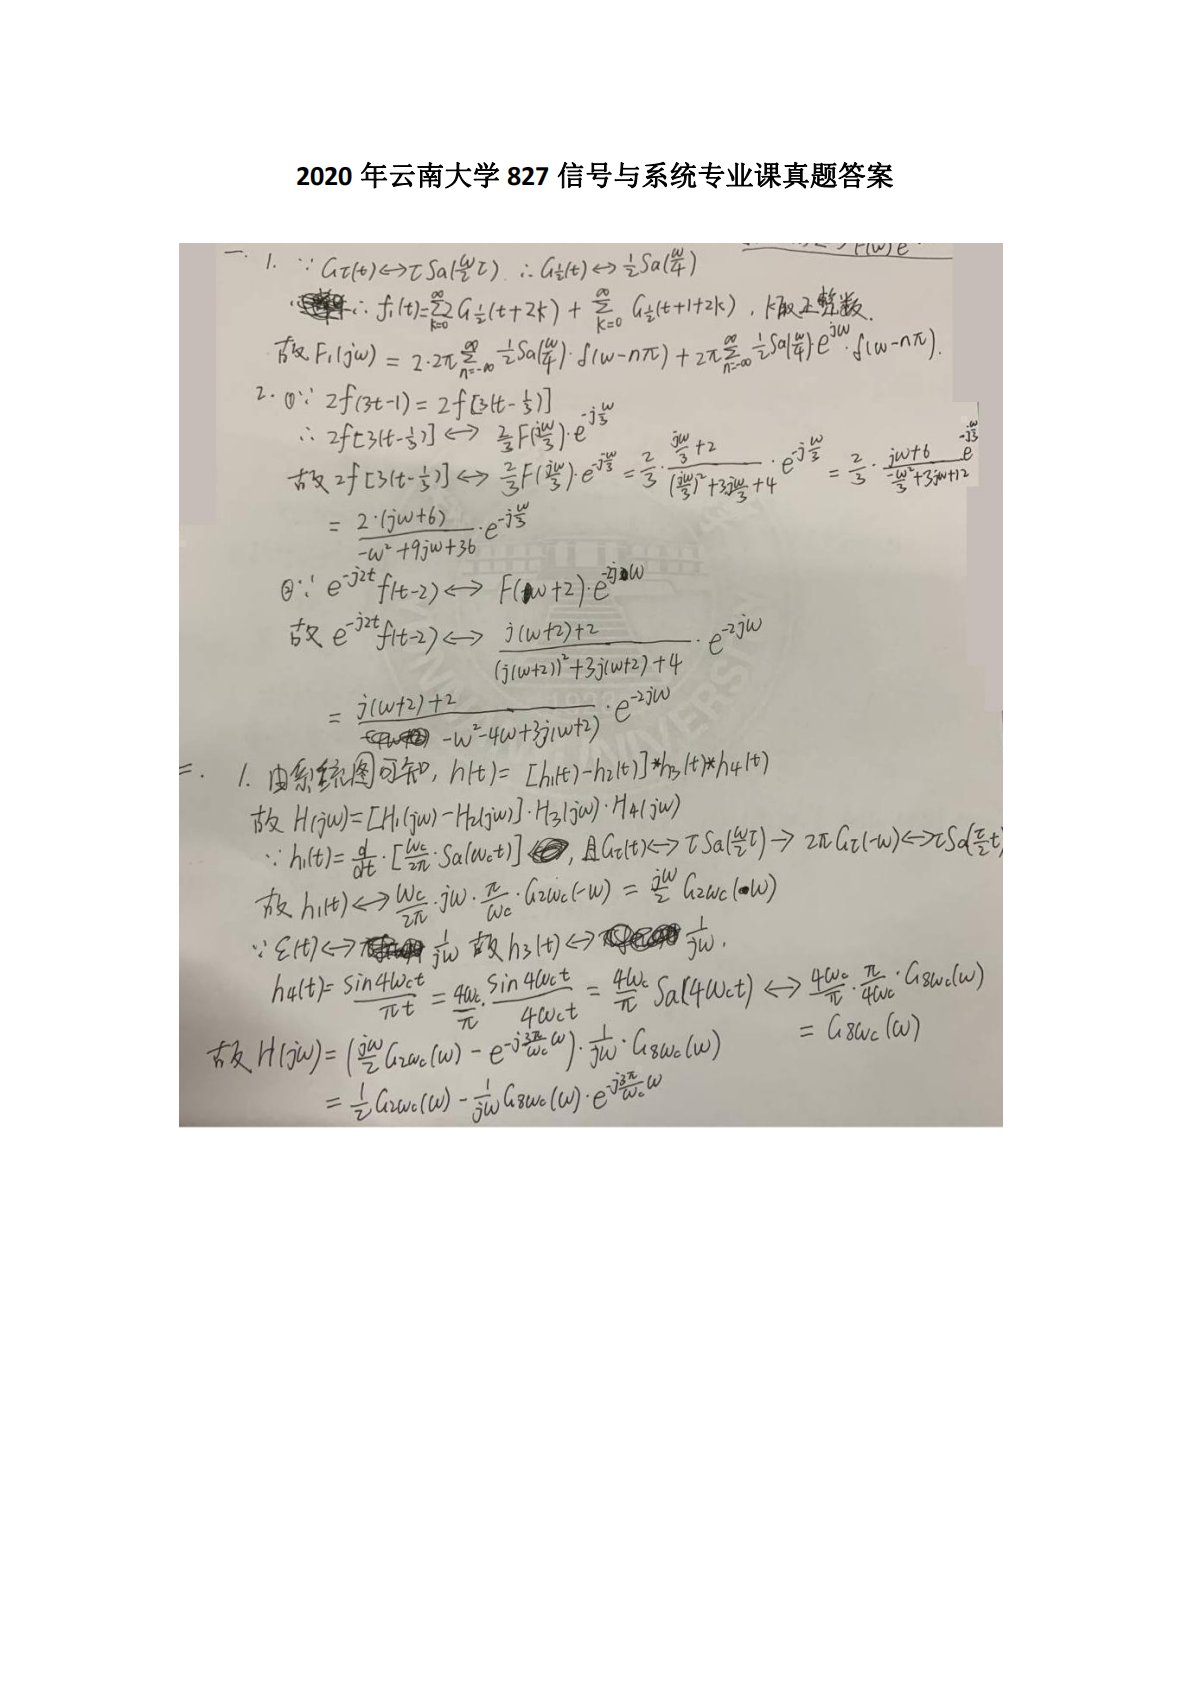 2020 年云南大学 827 信号与系统专业课真题答案
F(w)e
一. 1. ∵ Gτ(t)↔τSa(w/2 τ). ∴ G½(t)↔½Sa(w/4)
∴ f₁(t)=∑_{k=0}^{∞} 2G½(t+2k) + ∑_{k=0}^{∞} G½(t+1+2k), k取正整数.
故F₁(jw) = 2·2π∑_{n=-∞}^{∞} ½Sa(w/4)·δ(w-nπ) + 2π∑_{n=-∞}^{∞} ½Sa(w/4)·e^{jw}·δ(w-nπ).
2. ①∵ 2f(3t-1) = 2f[3(t-⅓)]
∴ 2f[3(t-⅓)] ↔ ⅔F(jw/3)·e^{-jw/3}
故2f[3(t-⅓)] ↔ ⅔F(jw/3)·e^{-jw/3} = ⅔·(jw/3+2)/((jw/3)²+3jw/3+4)·e^{-jw/3} = ⅔·(jw+6)/(-w²/3+3jw+12) e^{-jw/3}
= 2·(jw+6)/(-w²+9jw+36)·e^{-jw/3}
②∵ e^{-j2t}f(t-2) ↔ F(w+2)·e^{-2jw}
故 e^{-j2t}f(t-2) ↔ (j(w+2)+2)/((j(w+2))²+3j(w+2)+4)·e^{-2jw}
= (j(w+2)+2)/(-w²-4w+3j(w+2))·e^{-2jw}
二. 1. 由系统图可知, h(t)= [h₁(t)-h₂(t)]*h₃(t)*h₄(t)
故 H(jw)=[H₁(jw)-H₂(jw)]·H₃(jw)·H₄(jw)
∵ h₁(t)= d/dt·[wc/2π·Sa(wct)], 且Gτ(t)↔τSa(w/2 τ)→ 2πGτ(-w)↔τSa(τ/2 t)
故 h₁(t)↔ wc/2π·jw·π/wc·G2wc(-w) = jw/2 G2wc(w)
∵ ε(t)↔ 1/jw 故h₃(t)↔ 1/jw.
h₄(t)= sin4wct/πt = 4wc/π·sin4wct/4wct = 4wc/π Sa(4wct) ↔ 4wc/π·π/4wc·G8wc(w)
= G8wc(w)
故 H(jw)= (jw/2 G2wc(w) - e^{-j3π/wc w})·1/jw·G8wc(w)
= ½G2wc(w) - 1/jw G8wc(w)·e^{-j3π/wc w}